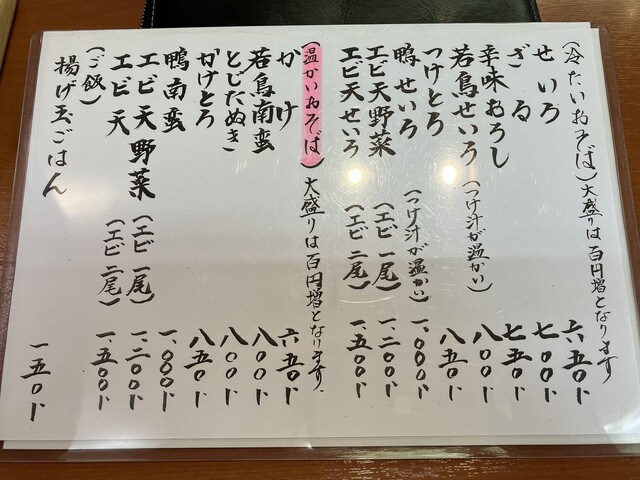 (冷たいおそば)大盛りは百円増となります
せいろ 六五〇円
ざる 七〇〇円
辛味おろし 七五〇円
若鳥せいろ(つけ汁が温かい) 八〇〇円
つけとろ 八五〇円
鴨せいろ(つけ汁が温かい) 一、〇〇〇円
エビ天野菜(エビ一尾) 一、二〇〇円
エビ天せいろ(エビ二尾) 一、五〇〇円
(温かいおそば)大盛りは百円増となります。
かけ 六五〇円
若鳥南蛮 八〇〇円
とじたぬき 八〇〇円
かけとろ 八五〇円
鴨南蛮 一、〇〇〇円
エビ天野菜(エビ一尾) 一、二〇〇円
エビ天(エビ二尾) 一、五〇〇円
(ご飯)
揚げ玉ごはん 一五〇円